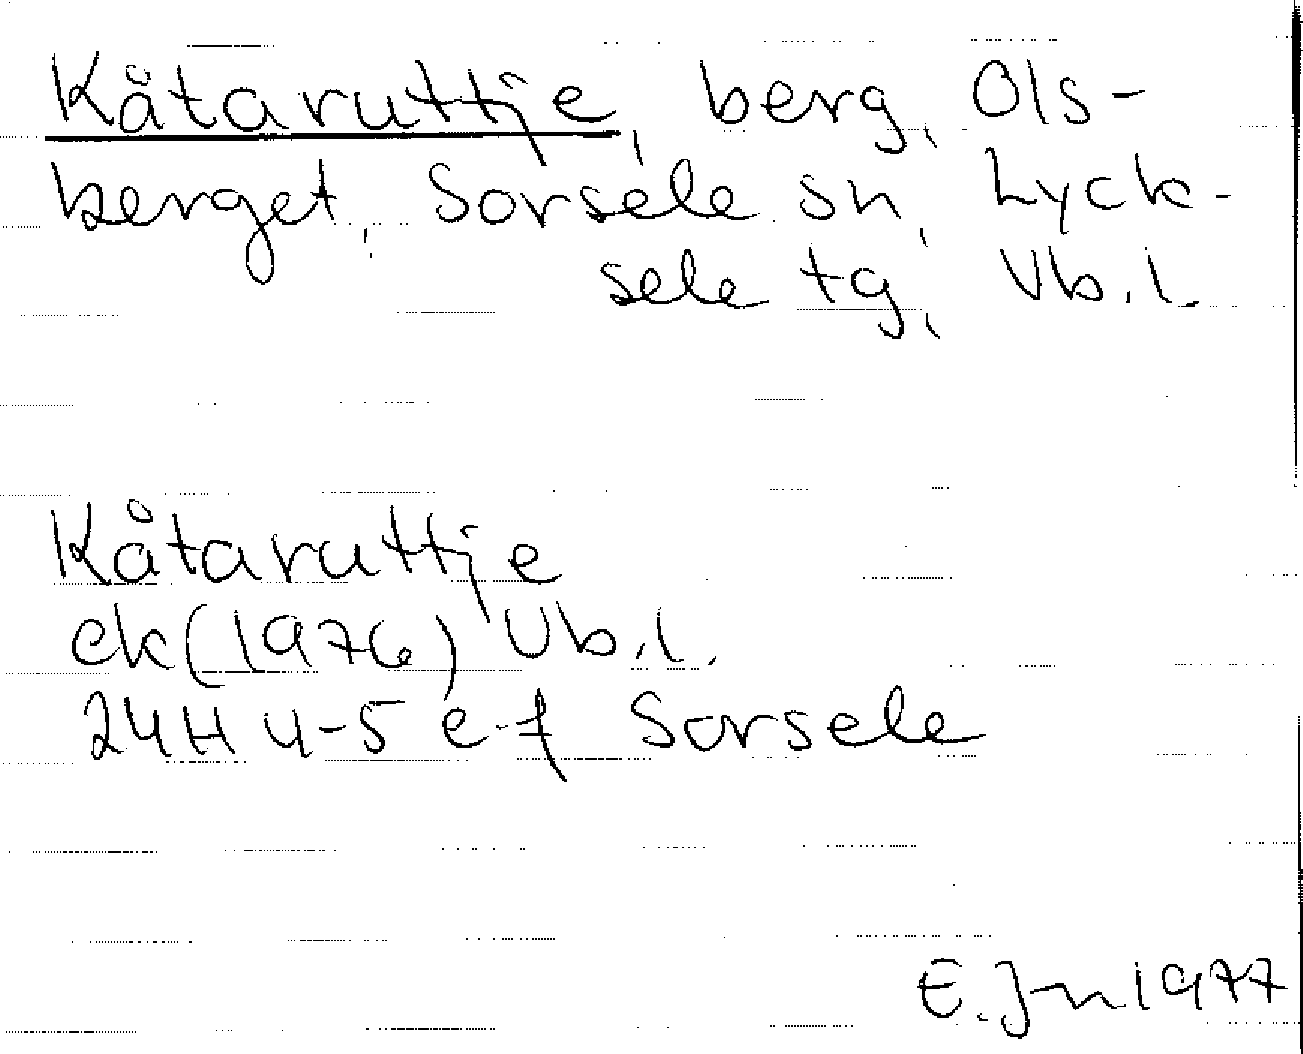 Kåtaruttje, berg, Ols-
berget, Sorsele sn, Lyck-
sele tg, Vb.l.
Kåtaruttje
ek (1976) Vb.l.
24H 4-5 e-f Sorsele
E. Jn 1977